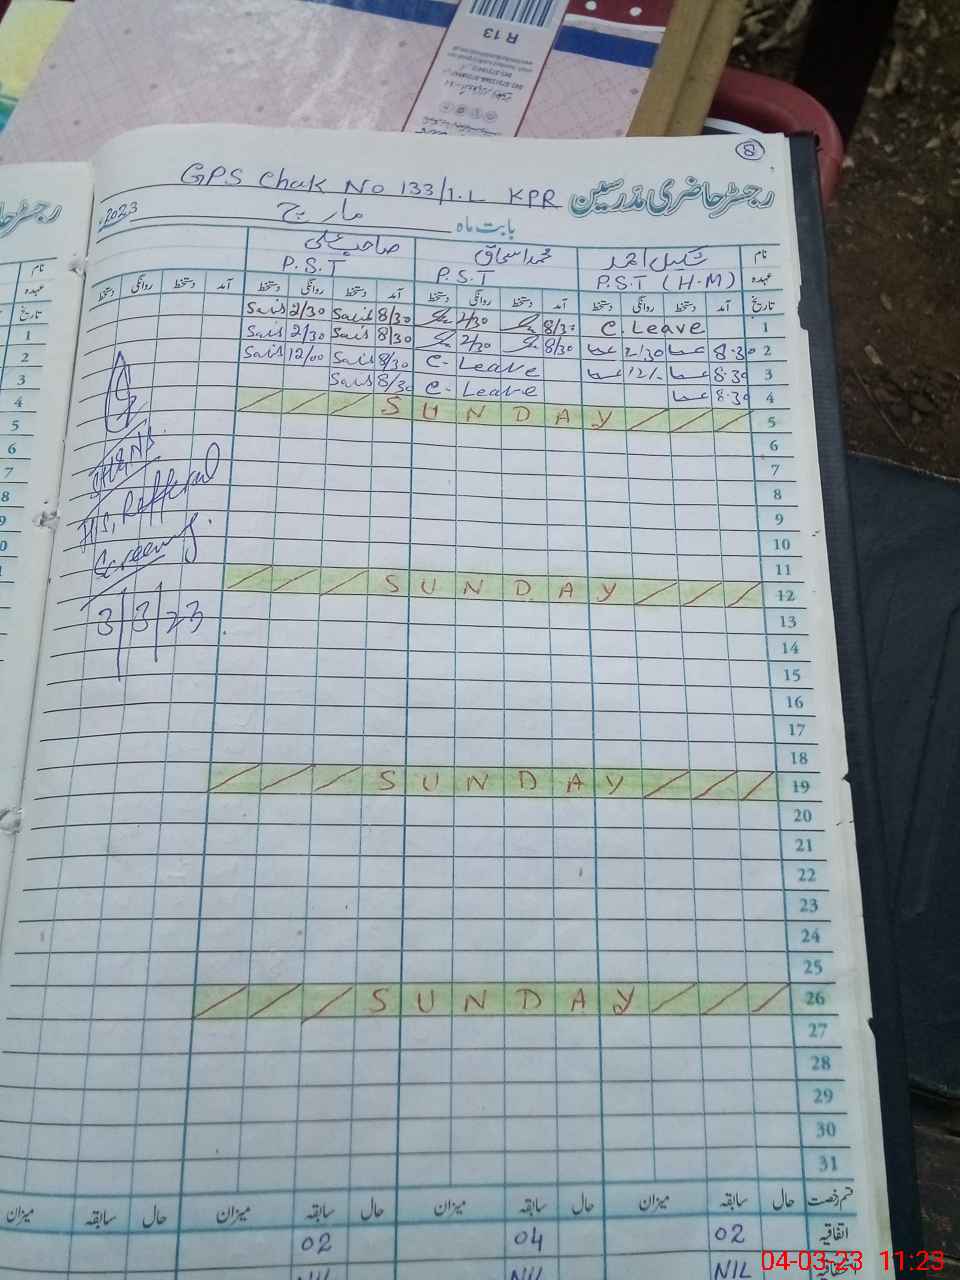 R 13
8
GPS Chak No 133/1.L KPR رجسٹر حاضری مدرسین
بابت ماہ مارچ 2023
نام شکیل احمد محمد اسحاق صاحب علی
عہدہ P.S.T (H.M) P.S.T P.S.T
تاریخ آمد دستخط روانگی دستخط آمد دستخط روانگی دستخط آمد دستخط روانگی دستخط آمد دستخط روانگی دستخط
1 C. Leave 8/30 2/30 8/30 Sais 2/30 Sais
2 8.30 2/30 8/30 2/30 8/30 Sais 2/30 Sais
3 8.30 12/- C- Leave 8/30 Sais 12/00 Sais
4 8.30 C- Leave 8/30 Sais
5 SUNDAY
6
7
8
9
10
11
12 SUNDAY
13
14
15
16
17
18
19 SUNDAY
20
21
22
23
24
25
26 SUNDAY
27
28
29
30
31
Refferal
Screening
3/3/23
قسم رخصت حال سابقہ میزان حال سابقہ میزان حال سابقہ میزان حال سابقہ میزان
اتفاقیہ 02 04 02
NIL NIL NIL
04-03-23 11:23